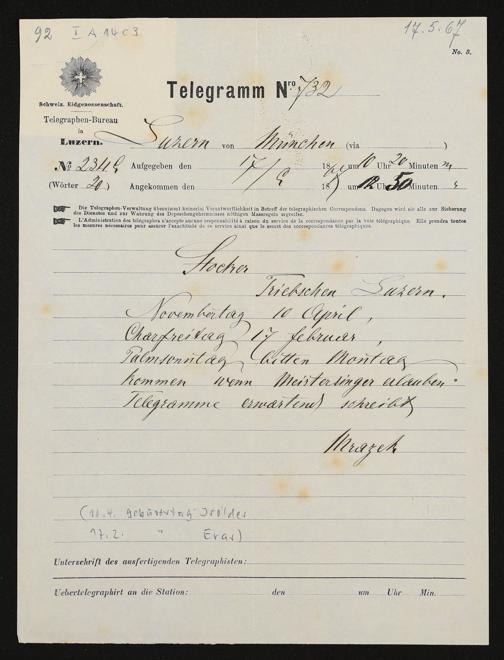 92 I A 14c3
17.5.67
No. 8.
Telegramm Nro 732
Schweiz. Eidgenossenschaft.
Telegraphen-Bureau
in
Luzern.
Luzern von München (via )
No 2349 Aufgegeben den 17/5 18 um 10 Uhr 20 Minuten m
(Wörter 20) Angekommen den 18 um Uhr 50 Minuten
Die Telegraphen-Verwaltung übernimmt keinerlei Verantwortlichkeit in Betreff der telegraphischen Correspondenz. Dagegen wird sie alle zur Sicherung
des Dienstes und zur Wahrung des Depeschengeheimnisses nöthigen Massregeln ergreifen.
L'Administration des télégraphes n'accepte aucune responsabilité à raison du service de la correspondance par la voie télégraphique. Elle prendra toutes
les mesures nécessaires pour assurer l'exactitude de ce service ainsi que le secret des correspondances télégraphiques.
Stocker
Triebschen Luzern.
Novembertag 10 April,
Charfreitag 17 februar,
Palmsonntag bitten Montag
kommen wenn Meistersinger erlauben.
Telegramme erwartend schreibt
Mrazek
(10.4. Geburtstag Isoldes
17.2. " Evas)
Unterschrift des ausfertigenden Telegraphisten:
Uebertelegraphirt an die Station: den um Uhr Min.